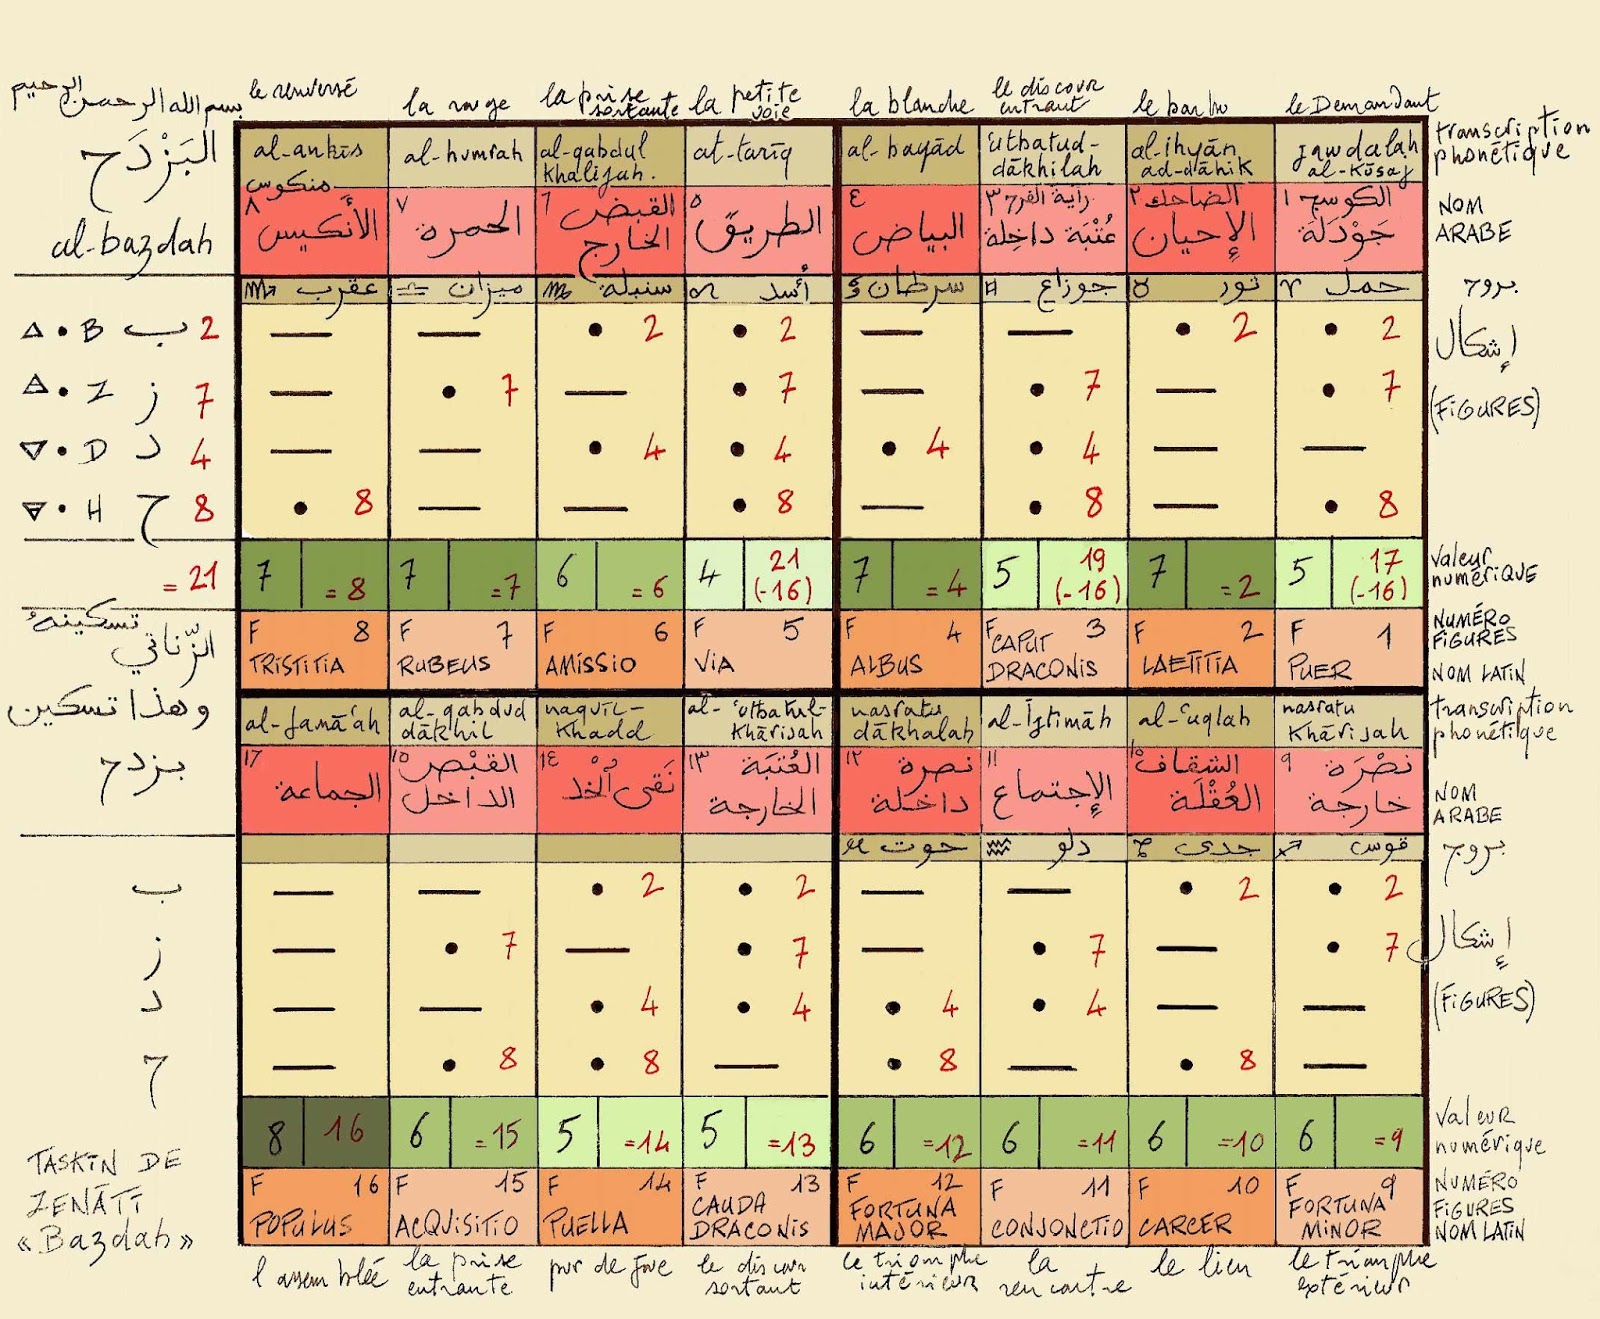 بسم الله الرحمن الرحيم
le renversé
la rouge
la prise sortante
la petite voie
la blanche
le discour entrant
le barbu
le Demandant
البَزْدَح
al-bazdah
al-ankīs
al-humrah
al-qabdul khalijah.
at-tarīq
al-bayād
'utbatud-dākhilah
al-ihyān ad-dāhik
jawdalah al-kūsaj
transcription phonétique
منكوس
٨ الأنكيس
٧ الحمرة
٦ القبض الخارج
٥ الطريق
٤ البياض
٣ راية الفرح
عُتْبَة داخلة
٢ الضاحك
الإحيان
١ الكوسج
جَوْدَلَة
NOM ARABE
♏ عقرب
♎ ميزان
♍ سنبلة
♌ أسد
♋ سرطان
♊ جوزاع
♉ ثور
♈ حمل
بروج
B ب 2
2 2 2 2
إشكال
Z ز 7
7 7 7 7
(FIGURES)
D د 4
4 4 4 4
H ح 8
8 8 8 8
= 21
7 =8
7 =7
6 =6
4 21 (-16)
7 =4
5 19 (-16)
7 =2
5 17 (-16)
valeur numérique
تسكينة
الزّناتي
F 8 TRISTITIA
F 7 RUBEUS
F 6 AMISSIO
F 5 VIA
F 4 ALBUS
F 3 CAPUT DRACONIS
F 2 LAETITIA
F 1 PUER
NUMÉRO FIGURES
NOM LATIN
وهذا تسكين
بزدح
al-jamā'ah
al-qabdud dākhil
naquīl-khadd
al-'utbatul-khārijah
nasratu dākhalah
al-Ijtimāh
al-'uqlah
nasratu khārijah
transcription phonétique
١٦ الجماعة
١٥ القبْص الداخل
١٤ نَقى الخد
١٣ العُتبَة الخارجة
١٢ نصرة داخلة
١١ الإجتماع
١٠ الشقاف
العُقْلَة
٩ نصْرَة خارجة
NOM ARABE
♓ حوت
♒ دلو
♑ جدى
♐ قوس
بروج
ب
2 2 2 2
إشكال
ز
7 7 7 7
(FIGURES)
د
4 4 4 4
ح
8 8 8 8
8 16
6 =15
5 =14
5 =13
6 =12
6 =11
6 =10
6 =9
Valeur numérique
TASKĪN DE ZENĀTĪ
« Bazdah »
F 16 POPULUS
F 15 ACQUISITIO
F 14 PUELLA
F 13 CAUDA DRACONIS
F 12 FORTUNA MAJOR
F 11 CONJONCTIO
F 10 CARCER
F 9 FORTUNA MINOR
NUMÉRO FIGURES
NOM LATIN
l'assemblée
la prise entrante
pur de joue
le discour sortant
le triomphe intérieur
la rencontre
le lien
le triomphe extérieur